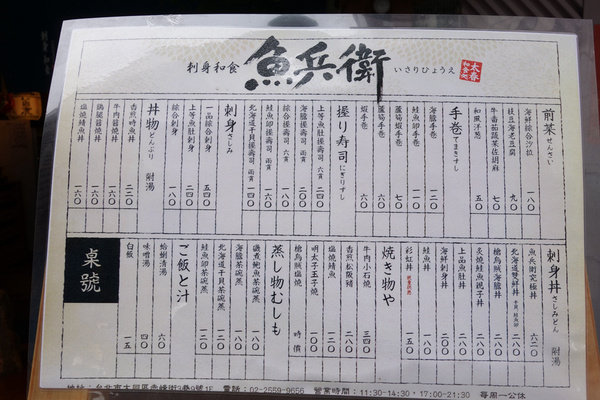 刺身和食 魚兵衛 いさりびょうえ
太春
和食処
前菜 ぜんさい
海鮮綜合沙拉 一八〇
枝豆海老豆腐 九〇
牛番茄蔬菜佐胡麻 七〇
和風洋蔥 五〇
手卷 てまきすし
海膽手卷 二二〇
鮭魚卵手卷 一一〇
蘆筍蝦手卷 七〇
蘆筍手卷 六〇
蝦手卷 六〇
握り寿司 にぎりすし
上等魚肚握壽司 六貫 二四〇
海膽握壽司 兩貫 二八〇
綜合握壽司 六貫 一八〇
鮭魚卵握壽司 兩貫 一六〇
北海道干貝握壽司 兩貫 一四〇
刺身 さしみ
一品綜合刺身 五四〇
上等魚肚刺身 二四〇
綜合刺身 一八〇
丼物 どんぶり 附湯
香煎時魚丼 二二〇
牛肉醬燒丼 一六〇
鷄腿醬燒丼 一六〇
塩燒鯖魚丼 一六〇
刺身丼 さしみどん 附湯
魚兵衛究極丼 六二〇
北海道雙鮮丼
槍烏賊海膽丼
炙燒鮭魚親子丼 二八〇
上品魚肚丼 二八〇
海鮮刺身丼 二二〇
鮭魚丼 一八〇
彩虹丼 一五〇
焼き物や
牛肉小石燒 三四〇
香煎松阪豬 二八〇
塩燒鯖魚 一二〇
明太子玉子燒 一〇〇
槍烏賊塩燒 時價
蒸し物 むしも
磯煮鮑魚茶碗蒸 一八〇
海膽茶碗蒸 一八〇
北海道干貝茶碗蒸 一二〇
鮭魚卵茶碗蒸 一二〇
ご飯と汁
蛤蜊清湯 六〇
味噌湯 四〇
白飯 一五
桌號
地址：台北市大同區赤峰街3巷9號1F 電話：02-2559-9656 營業時間：11:30-14:30，17:00-21:30 每周一公休